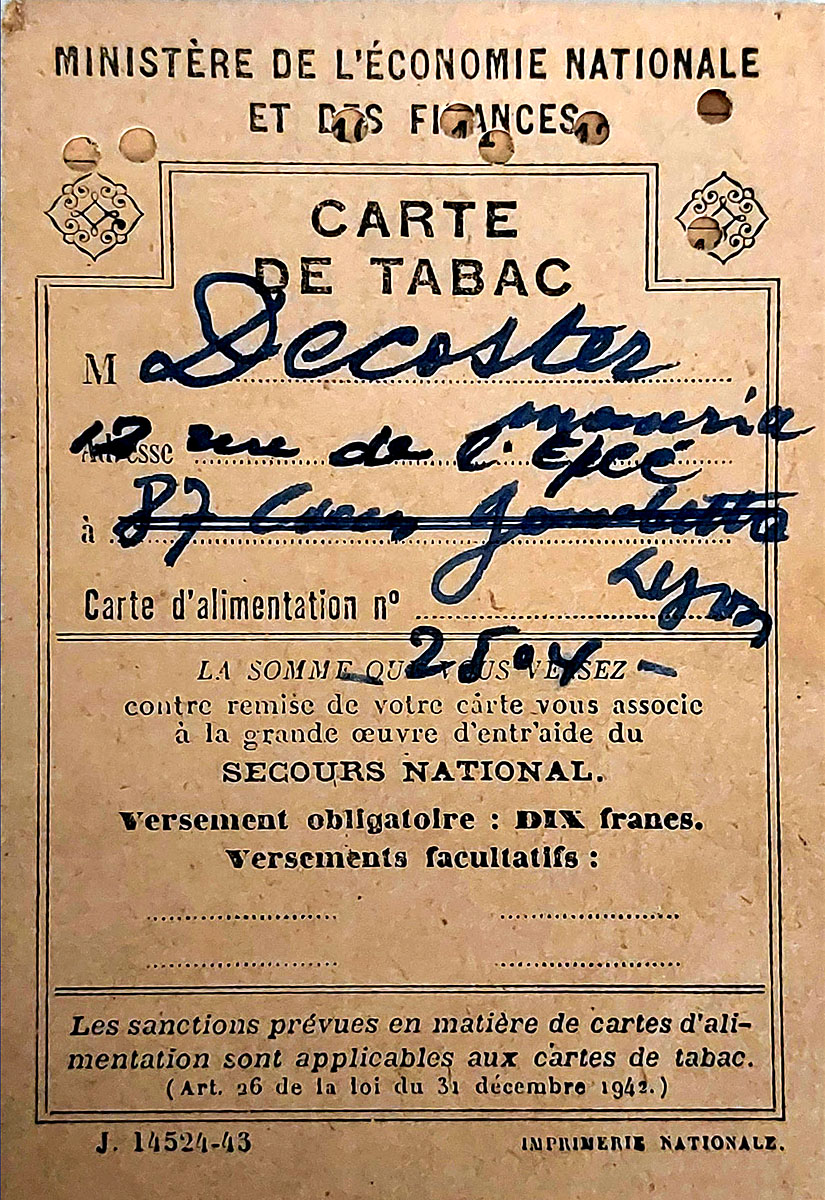 MINISTÈRE DE L'ÉCONOMIE NATIONALE
ET DES FINANCES
CARTE
DE TABAC
M Decoster
Adresse rue de l'Epée
à 87 Cours Gambetta
Lyon
Carte d'alimentation nº
- 2504 -
LA SOMME QUE VOUS VERSEZ
contre remise de votre carte vous associe
à la grande œuvre d'entr'aide du
SECOURS NATIONAL.
Versement obligatoire : DIX francs.
Versements facultatifs :
Les sanctions prévues en matière de cartes d'ali-
mentation sont applicables aux cartes de tabac.
(Art. 26 de la loi du 31 décembre 1942.)
J. 14524-43
IMPRIMERIE NATIONALE.